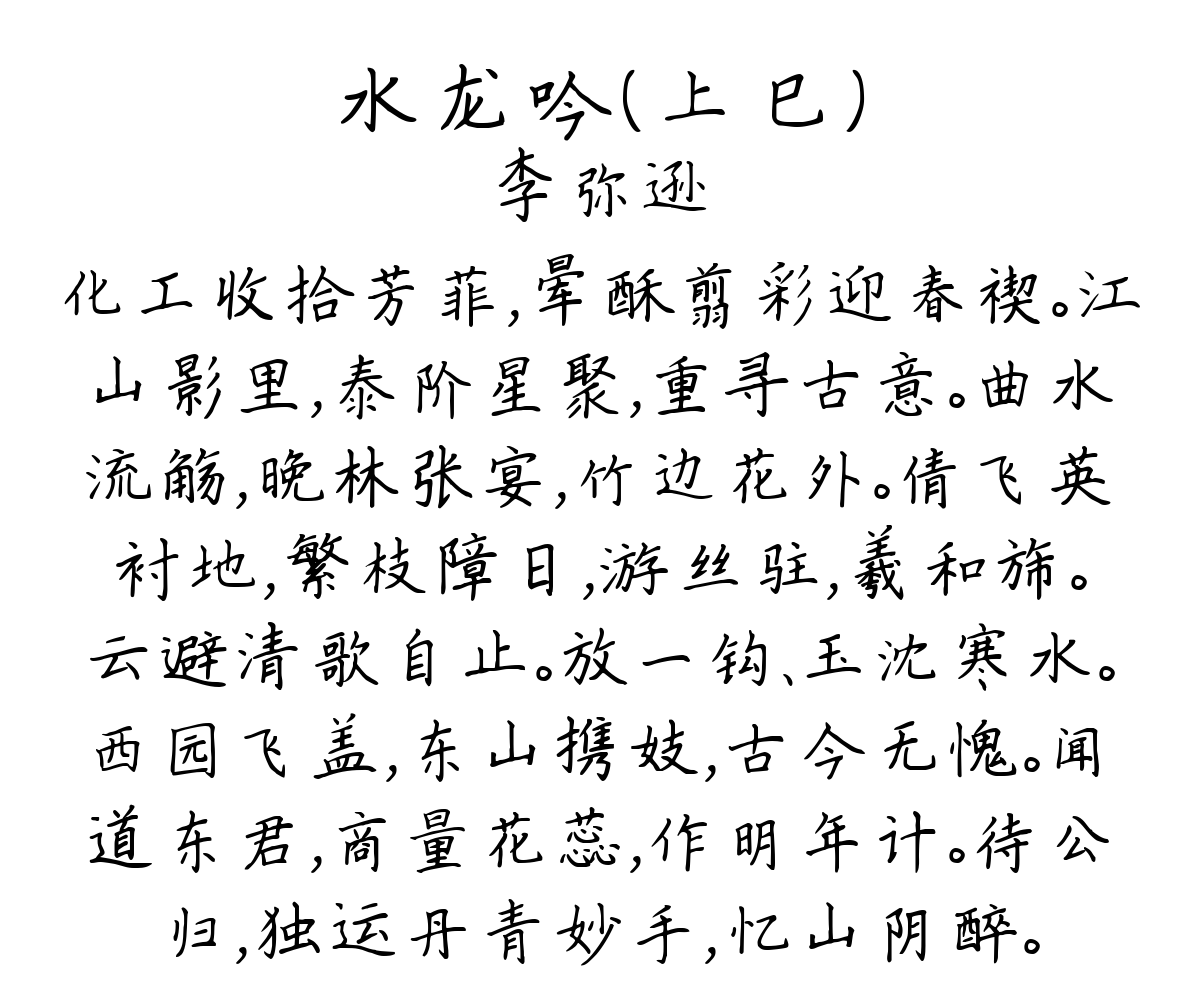 水龙吟(上巳)
李弥逊
化工收拾芳菲,晕酥剪彩迎春禊。江
山影里,泰阶星聚,重寻古意。曲水
流觞,晚林张宴,竹边花外。倩飞英
衬地,繁枝障日,游丝驻,羲和旆。
云避清歌自止。放一钩、玉沈寒水。
西园飞盖,东山携妓,古今无愧。闻
道东君,商量花蕊,作明年计。待公
归,独运丹青妙手,忆山阴醉。